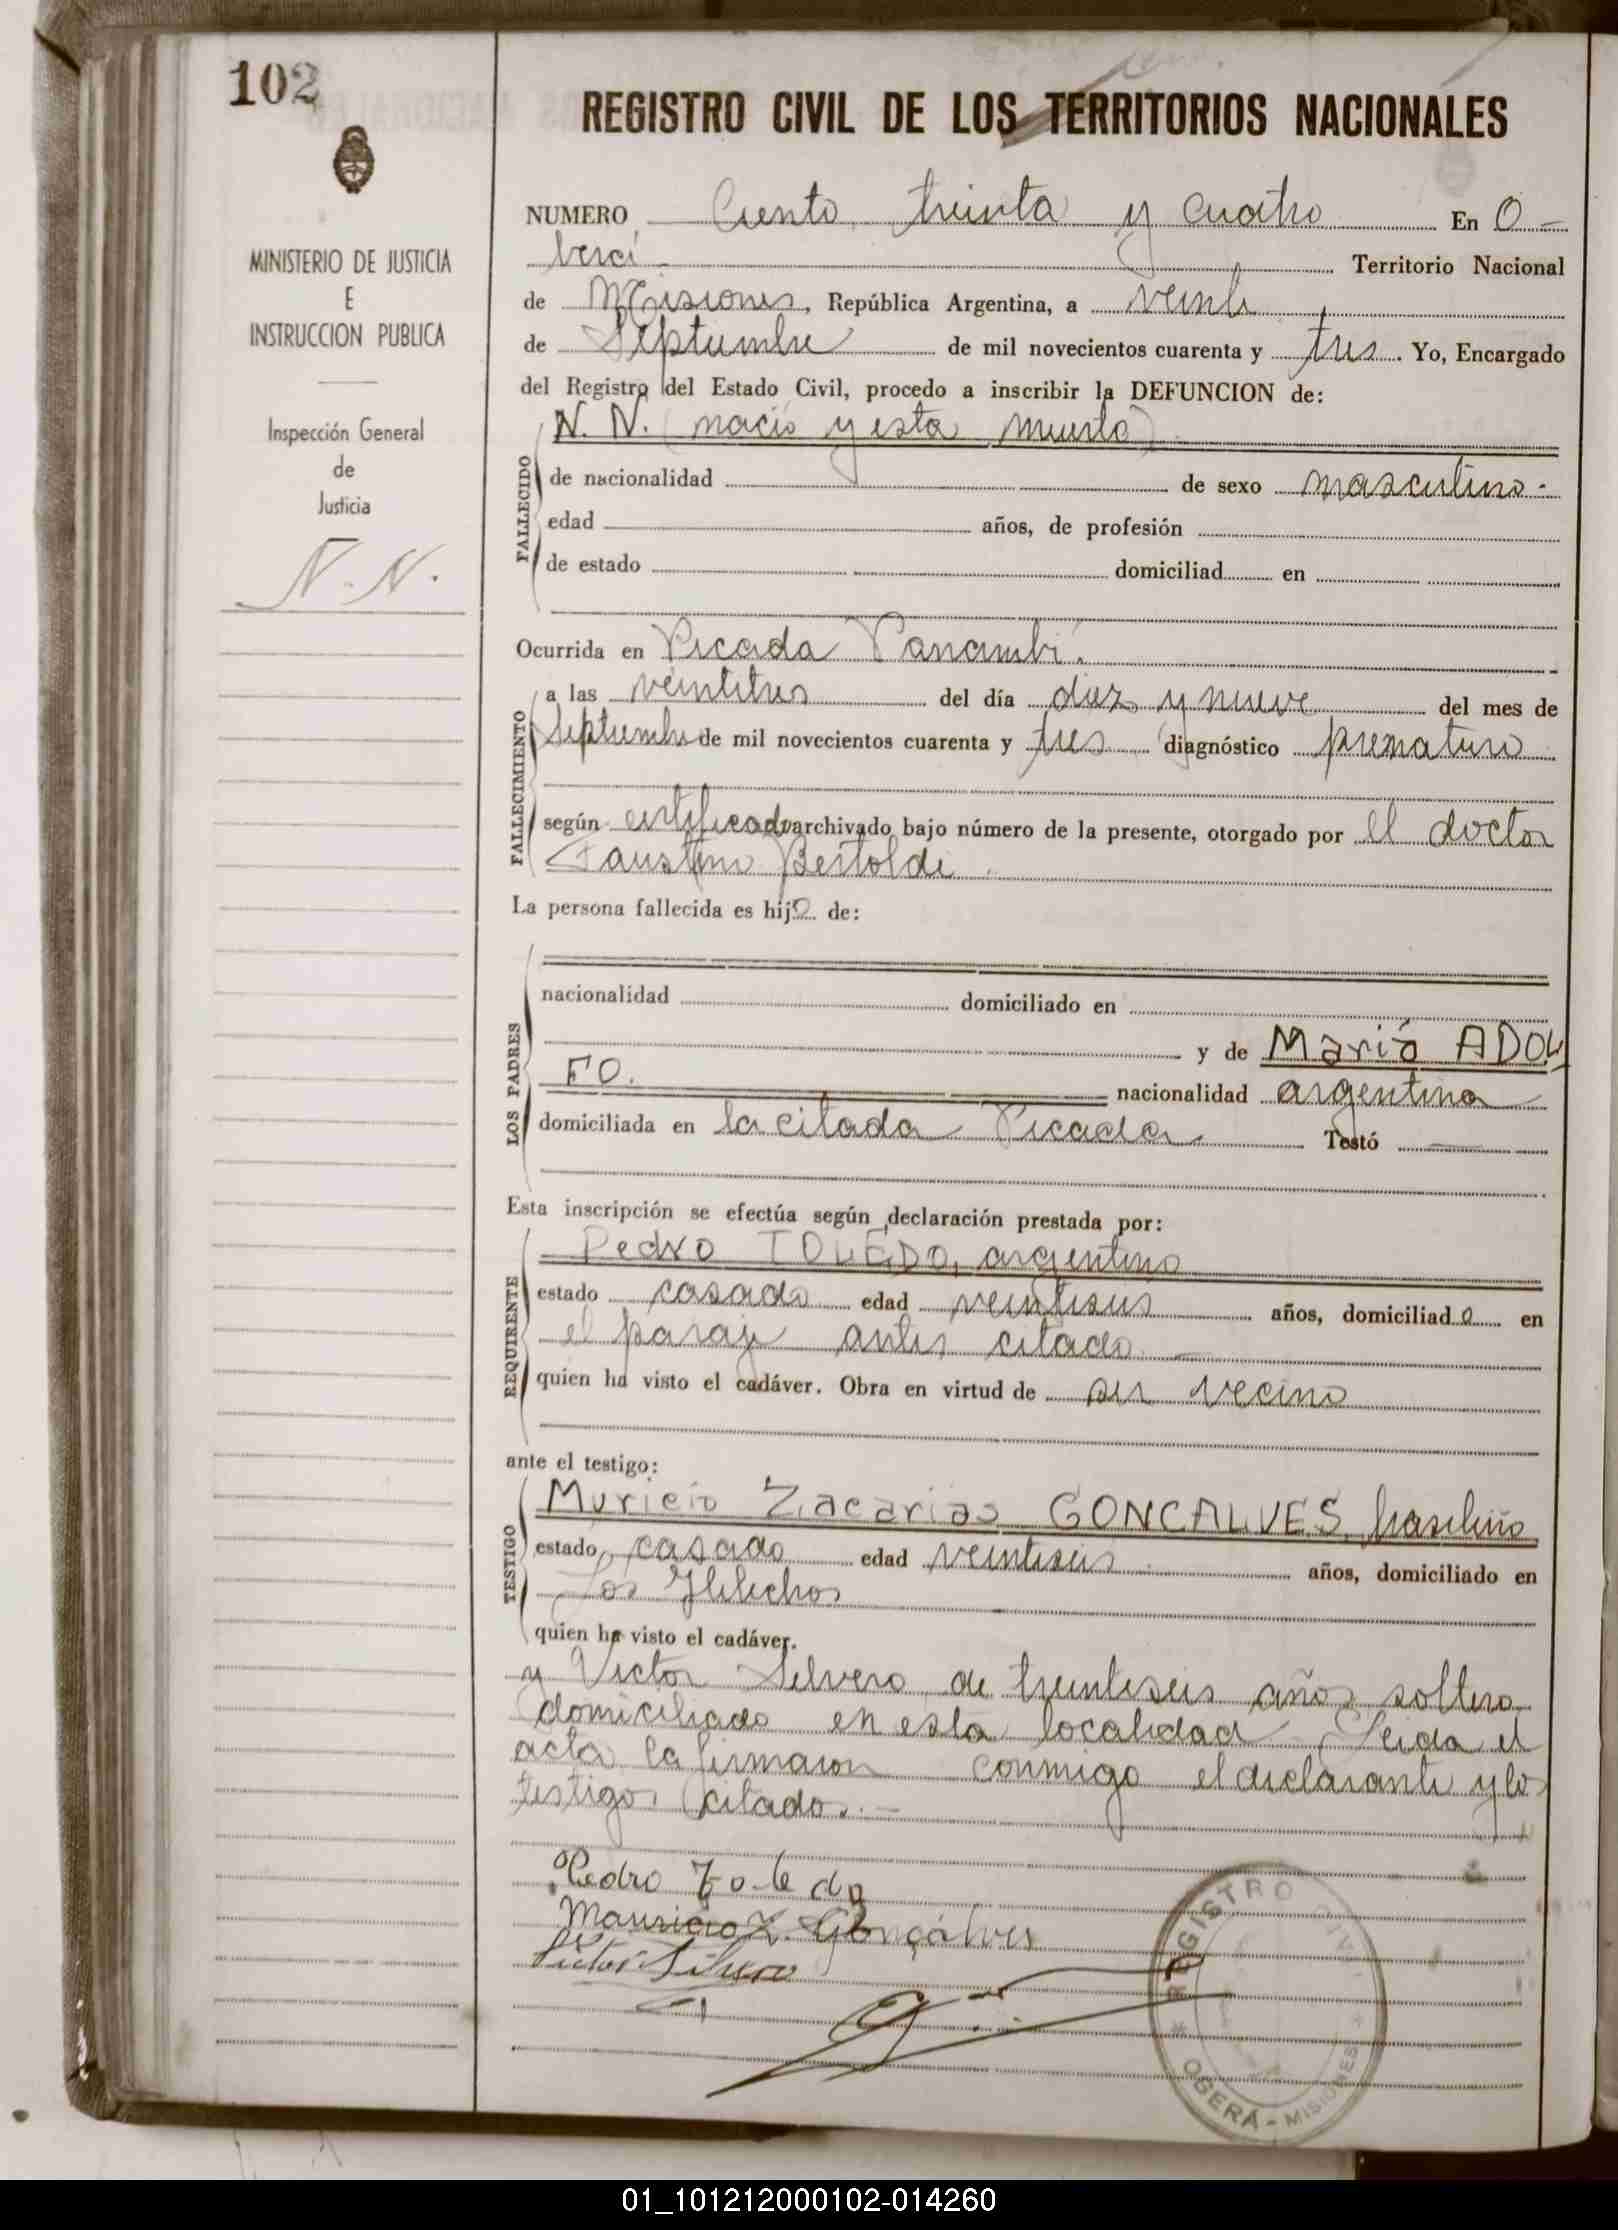 102
REGISTRO CIVIL DE LOS TERRITORIOS NACIONALES
MINISTERIO DE JUSTICIA
E
INSTRUCCION PUBLICA
Inspección General
de
Justicia
N. N.
NUMERO Ciento treinta y cuatro En O-
berá Territorio Nacional
de Misiones, República Argentina, a veinte
de Septiembre de mil novecientos cuarenta y tres. Yo, Encargado
del Registro del Estado Civil, procedo a inscribir la DEFUNCION de:
N. N. (nació y esta muerto)
FALLECIDO
de nacionalidad de sexo masculino.
edad años, de profesión
de estado domiciliad en
Ocurrida en Picada Panambí.
FALLECIMIENTO
a las veintitres del día diez y nueve del mes de
Septiembre de mil novecientos cuarenta y tres diagnóstico prematuro
según certificado archivado bajo número de la presente, otorgado por el doctor
Faustino Bertoldi.
La persona fallecida es hijo de:
LOS PADRES
nacionalidad domiciliado en
y de María ADOL
FO. nacionalidad argentina
domiciliada en la citada Picada Testó —
Esta inscripción se efectúa según declaración prestada por:
REQUIRENTE
Pedro TOLEDO, argentino
estado casado edad veintiseis años, domiciliado en
el paraje antes citado —
quien ha visto el cadáver. Obra en virtud de ser vecino
ante el testigo:
TESTIGO
Muricio Zacarias GONCALVES, brasileño
estado casado edad veintiseis años, domiciliado en
Los Helechos
quien ha visto el cadáver.
y Victor Silvero de treintiseis años soltero
domiciliado en esta localidad Leida el
acta la firmaron conmigo el declarante y los
testigos citados. —
Pedro Toledo
Mauricio Z. Gonçalves
Victor Silvero
REGISTRO CIVIL
* OBERÁ - MISIONES *
01_101212000102-014260